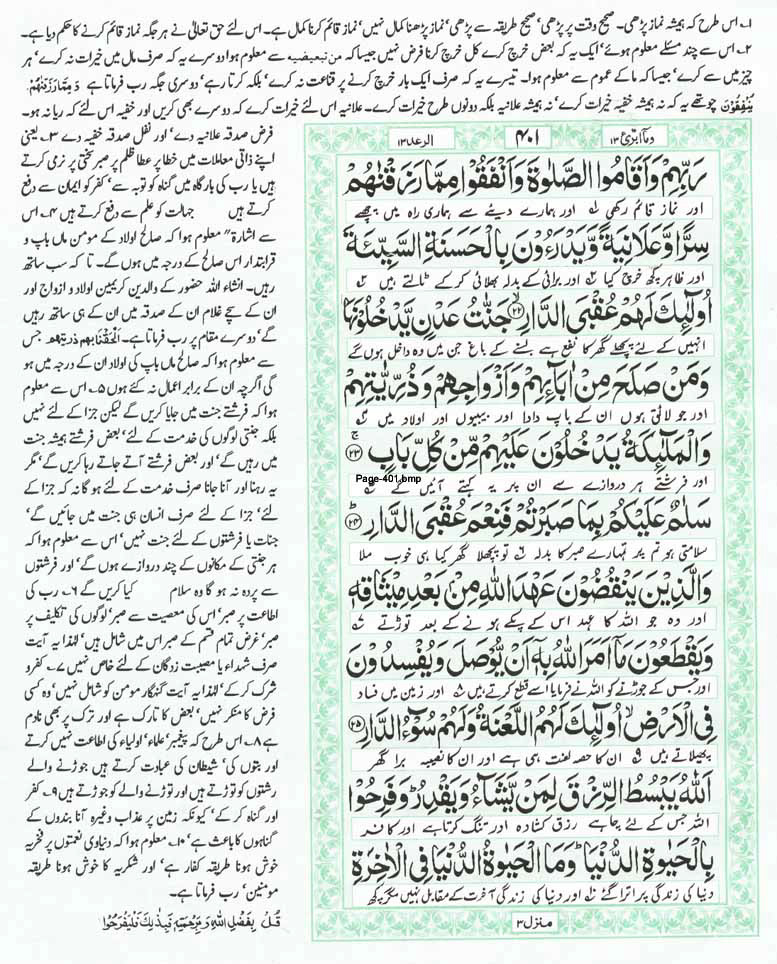 ۱۔ اس طرح کہ ہمیشہ نماز پڑھی۔ صحیح وقت پر پڑھی، صحیح طریقہ سے پڑھی، نماز پڑھنا کمال نہیں، نماز قائم کرنا کمال ہے۔ اس لئے حق تعالیٰ نے ہر جگہ نماز قائم کرنے کا حکم دیا ہے۔
۲۔ اس سے چند مسئلے معلوم ہوئے، ایک یہ کہ بعض خرچ کرے کل خرچ کرنا فرض نہیں جیسا کہ من تبعیضیہ سے معلوم ہوا دوسرے یہ کہ صرف مال میں خیرات نہ کرے، ہر
چیز میں سے کرے، جیسا کہ ما کے عموم سے معلوم ہوا۔ تیسرے یہ کہ صرف ایک بار خرچ کرنے پر قناعت نہ کرے، بلکہ کرتا رہے، دوسری جگہ رب فرماتا ہے وَمِمَّا رَزَقْنٰهُمْ
یُنْفِقُوْنَ چوتھے یہ کہ نہ ہمیشہ خفیہ خیرات کرے، نہ ہمیشہ علانیہ بلکہ دونوں طرح خیرات کرے۔ علانیہ اس لئے خیرات کرے کہ دوسرے بھی کریں اور خفیہ اس لئے کہ ریا نہ ہو۔
وما ابرئ ۱۳
۴۰۱
الرعد ۱۳
رَبِّهِمْ وَاَقَامُوا الصَّلٰوةَ وَاَنْفَقُوْا مِمَّا رَزَقْنٰهُمْ
اور نماز قائم رکھی ۱ اور ہمارے دیئے سے ہماری راہ میں چھپے
سِرًّا وَّعَلَانِيَةً وَّيَدْرَءُوْنَ بِالْحَسَنَةِ السَّيِّئَةَ
اور ظاہر کچھ خرچ کیا ۲ اور برائی کے بدلہ بھلائی کرکے ٹالتے ہیں ۳
اُولٰٓئِكَ لَهُمْ عُقْبَى الدَّارِ ﴿۲۲﴾ جَنّٰتُ عَدْنٍ يَّدْخُلُوْنَهَا
انہیں کے لئے پچھلے گھر کا نفع ہے بسنے کے باغ جن میں وہ داخل ہوں گے
وَمَنْ صَلَحَ مِنْ اٰبَآئِهِمْ وَاَزْوَاجِهِمْ وَذُرِّيّٰتِهِمْ
اور جو لائق ہوں ان کے باپ دادا اور بیبیوں اور اولاد میں ۴
وَالْمَلٰٓئِكَةُ يَدْخُلُوْنَ عَلَيْهِمْ مِّنْ كُلِّ بَابٍ ﴿۲۳﴾
Page-401.bmp
اور فرشتے ہر دروازے سے ان پر یہ کہتے آئیں گے ۵
سَلٰمٌ عَلَيْكُمْ بِمَا صَبَرْتُمْ فَنِعْمَ عُقْبَى الدَّارِ ﴿۲۴﴾
سلامتی ہو تم پر تمہارے صبر کا بدلہ ۶ تو پچھلا گھر کیا ہی خوب ملا
وَالَّذِيْنَ يَنْقُضُوْنَ عَهْدَ اللهِ مِنْ بَعْدِ مِيْثَاقِهٖ
اور وہ جو اللہ کا عہد اس کے پکے ہونے کے بعد توڑتے ۷
وَيَقْطَعُوْنَ مَآ اَمَرَ اللهُ بِهٖٓ اَنْ يُّوْصَلَ وَيُفْسِدُوْنَ
اور جس کے جوڑنے کو اللہ نے فرمایا اسے قطع کرتے ہیں ۸ اور زمین میں فساد
فِى الْاَرْضِ اُولٰٓئِكَ لَهُمُ اللَّعْنَةُ وَلَهُمْ سُوْٓءُ الدَّارِ ﴿۲۵﴾
پھیلاتے ہیں ۹ ان کا حصہ لعنت ہی ہے اور ان کا نصیبہ برا گھر
اَللهُ يَبْسُطُ الرِّزْقَ لِمَنْ يَّشَآءُ وَيَقْدِرُ وَفَرِحُوْا
اللہ جس کے لئے چاہے رزق کشادہ اور تنگ کرتا ہے اور کافر
بِالْحَيٰوةِ الدُّنْيَا وَمَا الْحَيٰوةُ الدُّنْيَا فِى الْاٰخِرَةِ
دنیا کی زندگی پر اترا گئے ۱۰ اور دنیا کی زندگی آخرت کے مقابل نہیں مگر کچھ
منزل ۳
فرض صدقہ علانیہ دے، اور نفل صدقہ خفیہ دے ۳۔ یعنی
اپنے ذاتی معاملات میں خطا پر عطا ظلم پر صبر سختی پر نرمی کرتے
ہیں یا رب کی بارگاہ میں گناہ کو توبہ سے، کفر کو ایمان سے دفع
کرتے ہیں جہالت کو علم سے دفع کرتے ہیں ۴۔ اس
سے اشارۃً معلوم ہوا کہ صالح اولاد کے مومن ماں باپ و
قرابتدار اس صالح کے درجہ میں ہوں گے۔ تا کہ سب ساتھ
رہیں۔ انشاء اللہ حضور کے والدین کریمین اولاد و ازواج اور
ان کے سچے غلام ان کے صدقہ میں ان کے ہی ساتھ رہیں
گے، دوسرے مقام پر رب فرماتا ہے۔ اَلْحَقْنَا بِهِمْ ذُرِّيَّتَهُمْ جس
سے معلوم ہوا کہ صالح ماں باپ کی اولاد ان کے درجہ میں ہو
گی اگرچہ ان کے برابر اعمال نہ کئے ہوں ۵۔ اس سے معلوم
ہوا کہ فرشتے جنت میں جایا کریں گے لیکن جزا کے لئے نہیں
بلکہ جنتی لوگوں کی خدمت کے لئے، بعض فرشتے ہمیشہ جنت
میں رہیں گے، اور بعض فرشتے آتے جاتے رہا کریں گے، مگر
یہ رہنا اور آنا جانا صرف خدمت کے لئے ہو گا نہ کہ جزا کے
لئے، جزا کے لئے صرف انسان ہی جنت میں جائیں گے،
جنات یا فرشتوں کے لئے جنت نہیں، اس سے معلوم ہوا کہ
ہر جنتی کے مکانوں کے چند دروازے ہوں گے، اور فرشتوں
سے پردہ نہ ہو گا وہ سلام کیا کریں گے ۶۔ رب کی
اطاعت پر صبر، اس کی معصیت سے صبر، لوگوں کی تکلیف پر
صبر، غرض تمام قسم کے صبر اس میں شامل ہیں، لہٰذا یہ آیت
صرف شہداء یا مصیبت زدگان کے لئے خاص نہیں ۷۔ کفر و
شرک کر کے، لہٰذا یہ آیت گنہگار مومن کو شامل نہیں، وہ کسی
فرض کا منکر نہیں، بعض کا تارک ہے اور ترک پر بھی نادم
ہے ۸۔ اس طرح کہ پیغمبر، علماء، اولیاء کی اطاعت نہیں کرتے
اور بتوں کی، شیطان کی عبادت کرتے ہیں جوڑنے والے
رشتوں کو توڑتے ہیں اور توڑنے والے کو جوڑتے ہیں ۹۔ کفر
اور گناہ کر کے، کیونکہ زمین پر عذاب وغیرہ آنا بندوں کے
گناہوں کا باعث ہے، ۱۰۔ معلوم ہوا کہ دنیاوی نعمتوں پر فخریہ
خوش ہونا طریقہ کفار ہے، اور شکریہ کا خوش ہونا طریقہ
مومنین، رب فرماتا ہے۔
قُلْ بِفَضْلِ اللهِ وَبِرَحْمَتِهٖ فَبِذٰلِكَ فَلْيَفْرَحُوْا